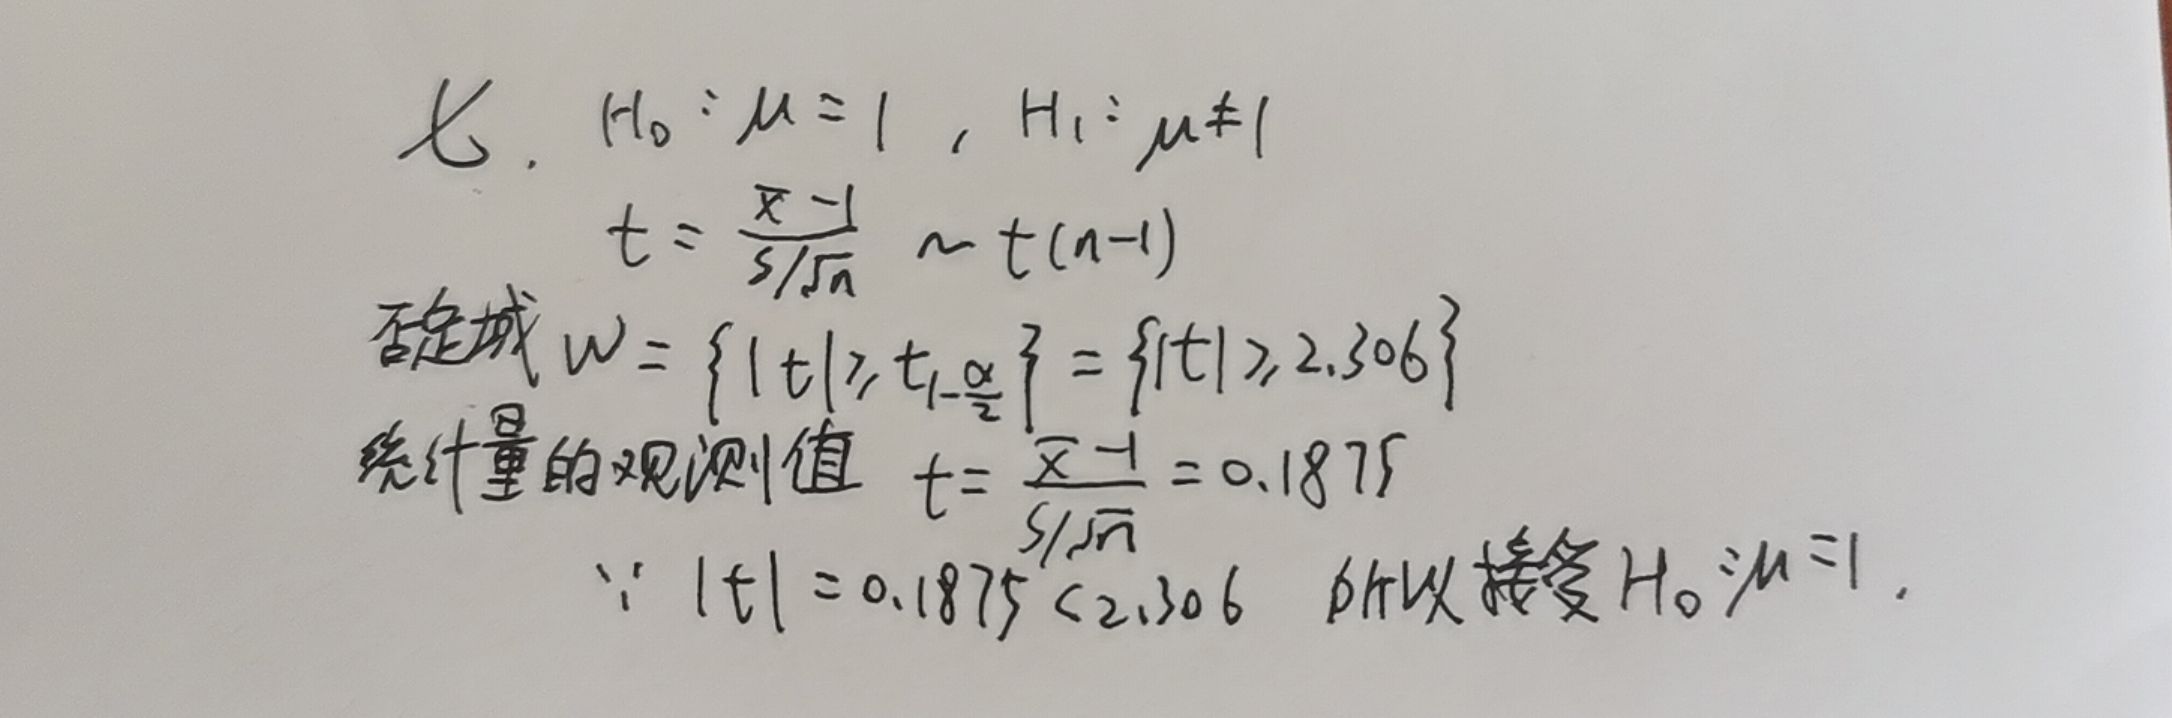 七. H₀:μ=1, H₁:μ≠1
t = (x̄-1)/(s/√n) ~ t(n-1)
否定域 W = {|t|≥t_{1-α/2}} = {|t|≥2.306}
统计量的观测值 t = (x̄-1)/(s/√n) = 0.1875
∵ |t| = 0.1875 < 2.306 所以接受H₀:μ=1.